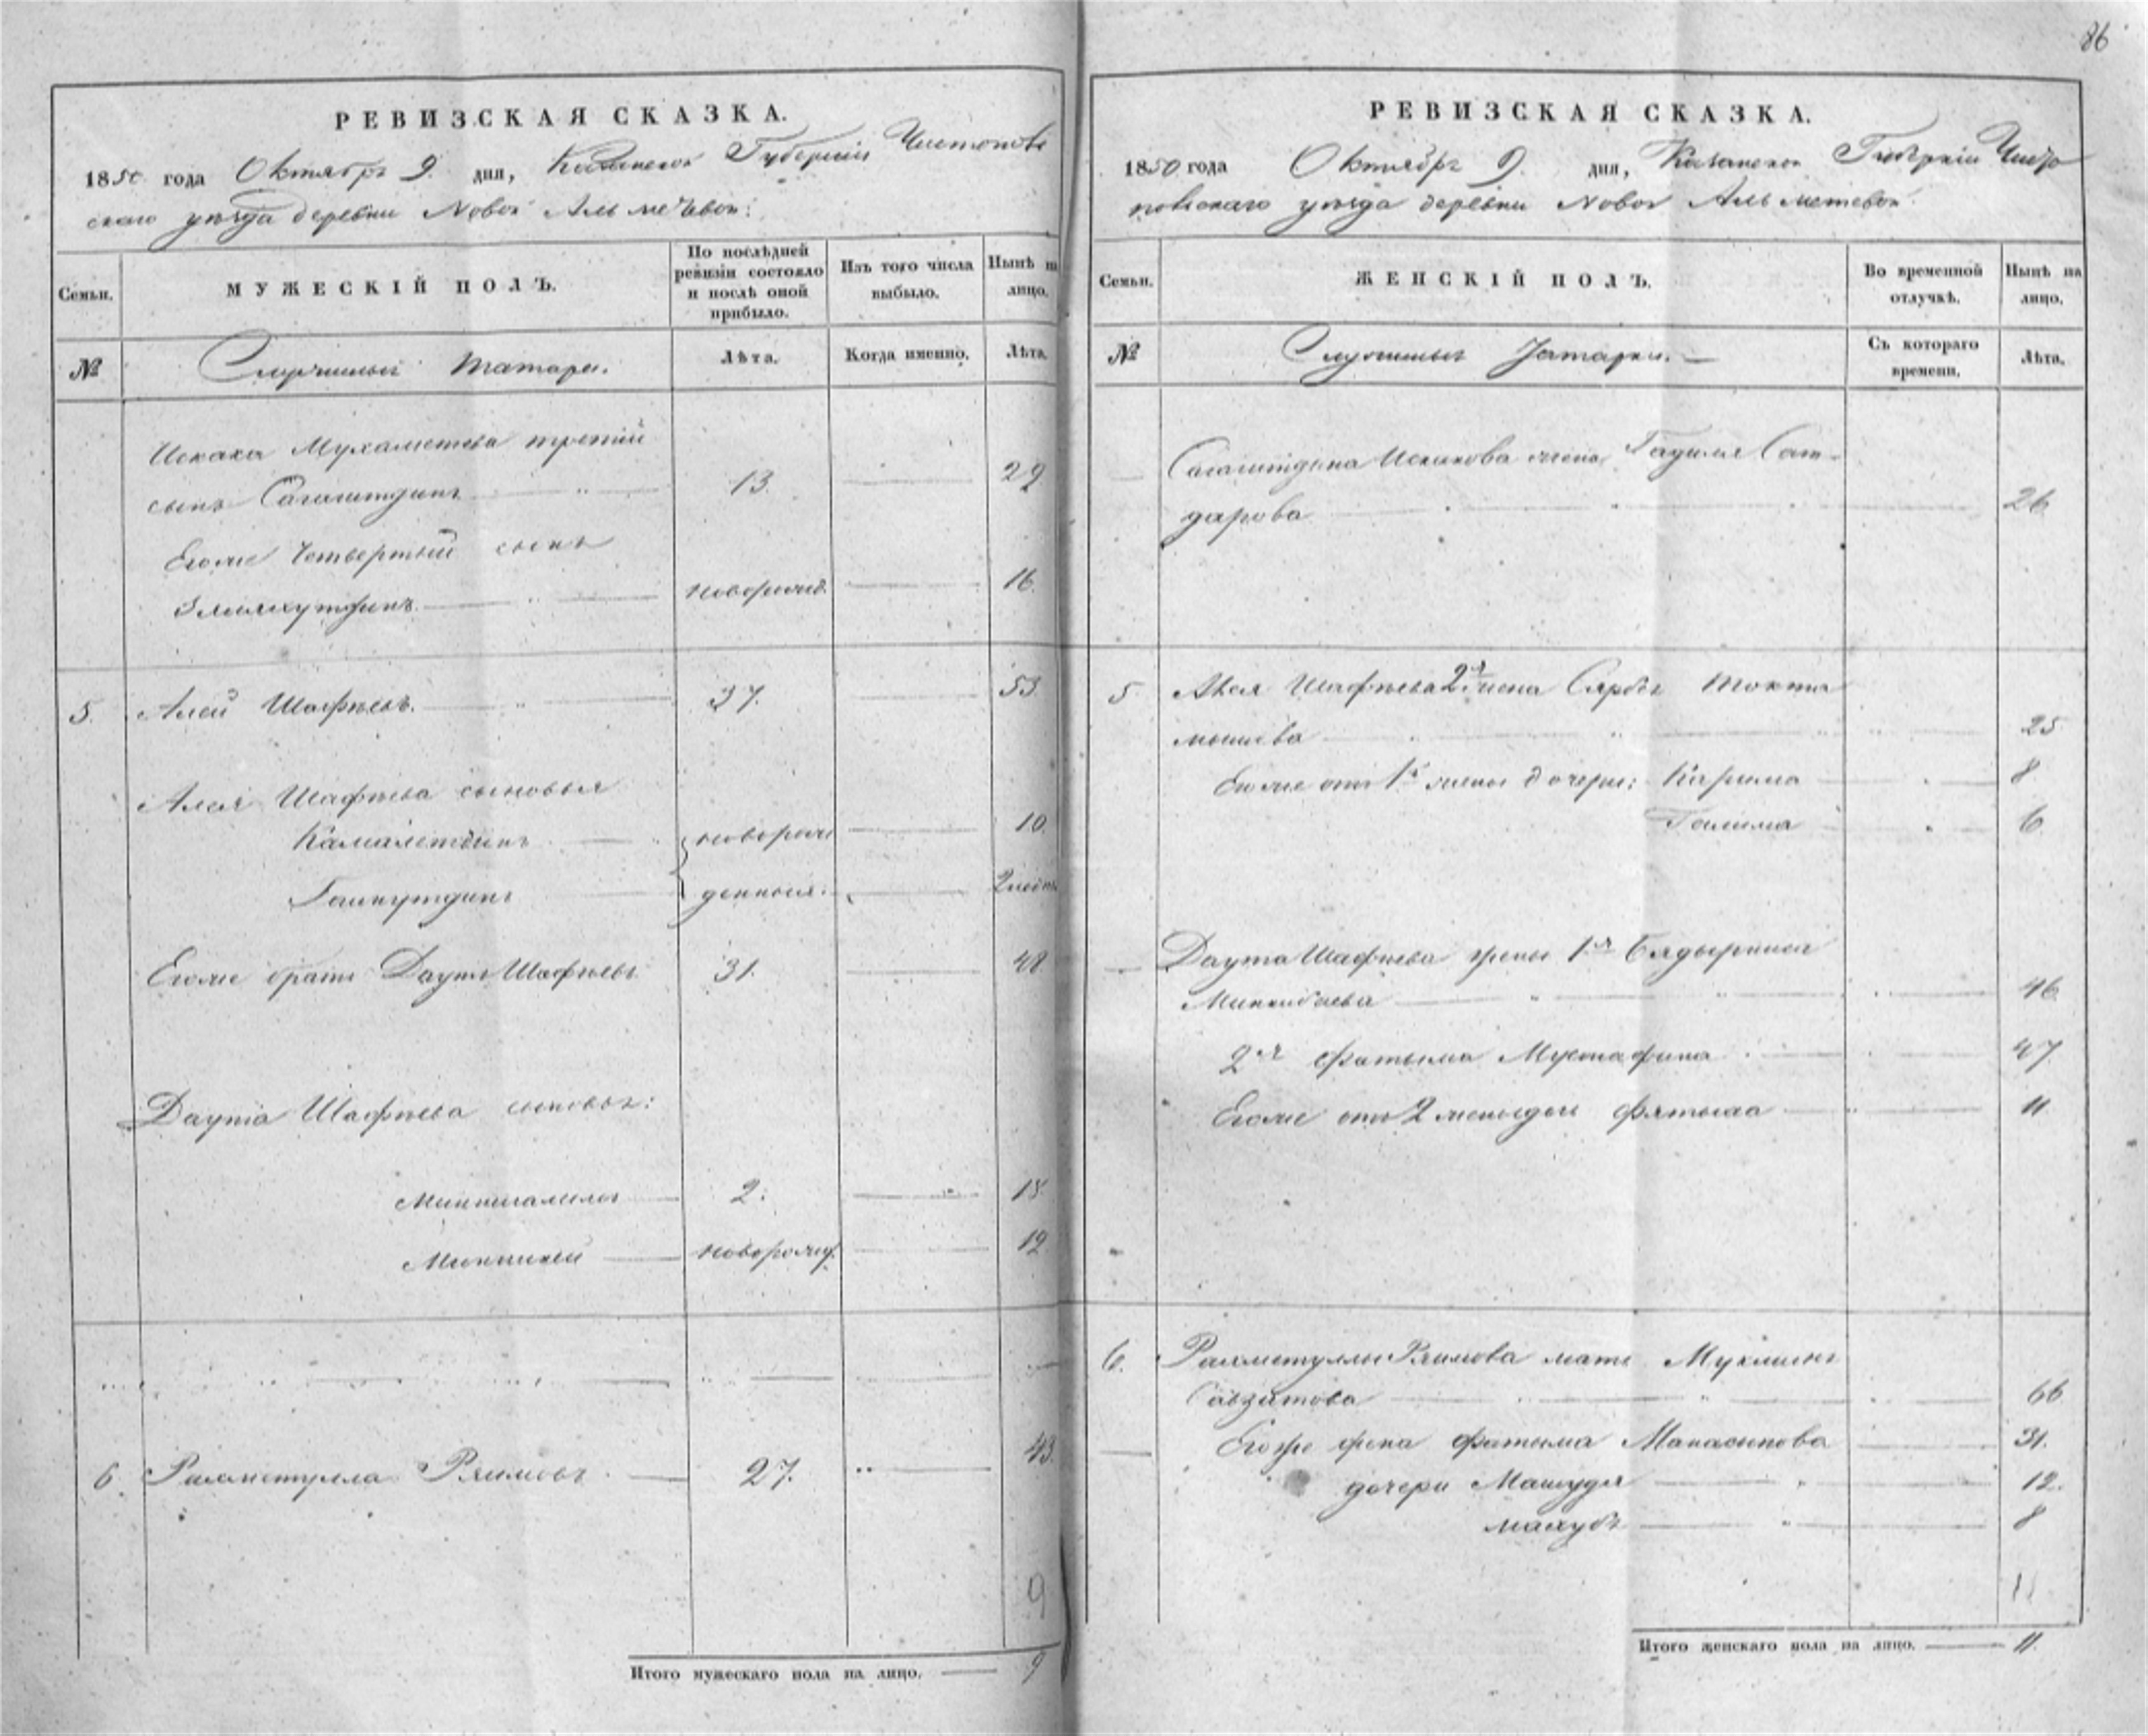 86
РЕВИЗСКАЯ СКАЗКА.
1850 года Октября 9. дня, Казанской Губернии Чистополь
скаго уезда деревни Новой Альметевой:
Семьи.
МУЖЕСКІЙ ПОЛЪ.
По послѣдней ревизіи состояло и послѣ оной прибыло.
Изъ того числа выбыло.
Нынѣ на лицо.
№
Служилые татары.
Лѣта.
Когда именно.
Лѣта.
Искака Мухаметева третій
сынъ 13. 29
Егоже четвертый сынъ
новорожд. 16.
5. Алей Шафѣевъ. 37. 53.
Алея Шафѣева сыновья
Камалетдинъ новорож 10.
денные. 2 недѣл.
Егоже братъ Даутъ Шафѣевъ 31. 48
Даута Шафѣева сыновья:
2. 18
Миннихей новорожд. 12
6. Рахметулла Рлимовъ. 27. 43.
9
Итого мужескаго пола на лицо. 9
РЕВИЗСКАЯ СКАЗКА.
1850 года Октября 9. дня, Казанской Губерніи Чисто
польскаго уезда деревни Новой Альметевой.
Семьи.
ЖЕНСКІЙ ПОЛЪ.
Во временной отлучкѣ.
Нынѣ на лицо.
№
Служилыхъ Татарки.
Съ котораго времени.
Лѣта.
Искакова жена Сат-
дарова 26
5. Алея Шафѣева 2я жена Сарбы Токта
мышева 25
Егоже отъ 1й жены дочери: Карима 8
Галима 6
Даута Шафѣева жены 1я
Миннибаева 46
2я Фатыма Мустафина 47
Егоже отъ 2 жены дочь 11
6. Рахметуллы Рлимова мать
66
Егоже жена Фатыма Манасыпова 31.
дочери 12.
Махубъ 8
11
Итого женскаго пола на лицо. 11.